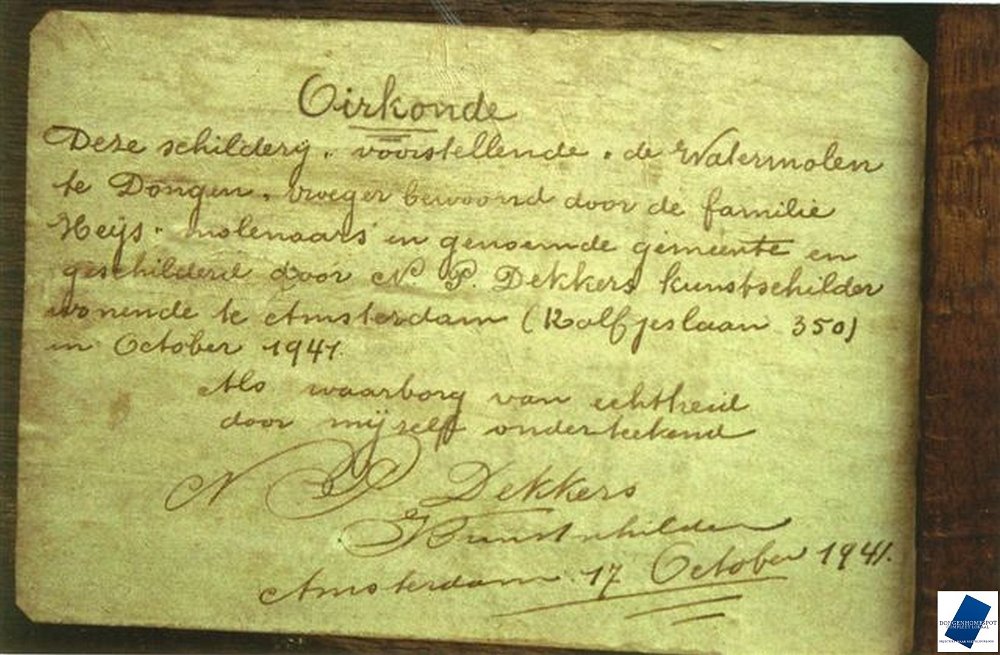 Oirkonde
Deze schilderij „ voorstellende „ de Watermolen
te Dongen „ vroeger bewoond door de familie
Heijs „ molenaars in genoemde gemeente en
geschilderd door N. P. Dekkers kunstschilder
wonende te Amsterdam (Kalfjeslaan 350)
in October 1941.
Als waarborg van echtheid
door mijzelf onderteekend
N P Dekkers
Kunstschilder
Amsterdam 17 October 1941.
DONGENHOMESPOT